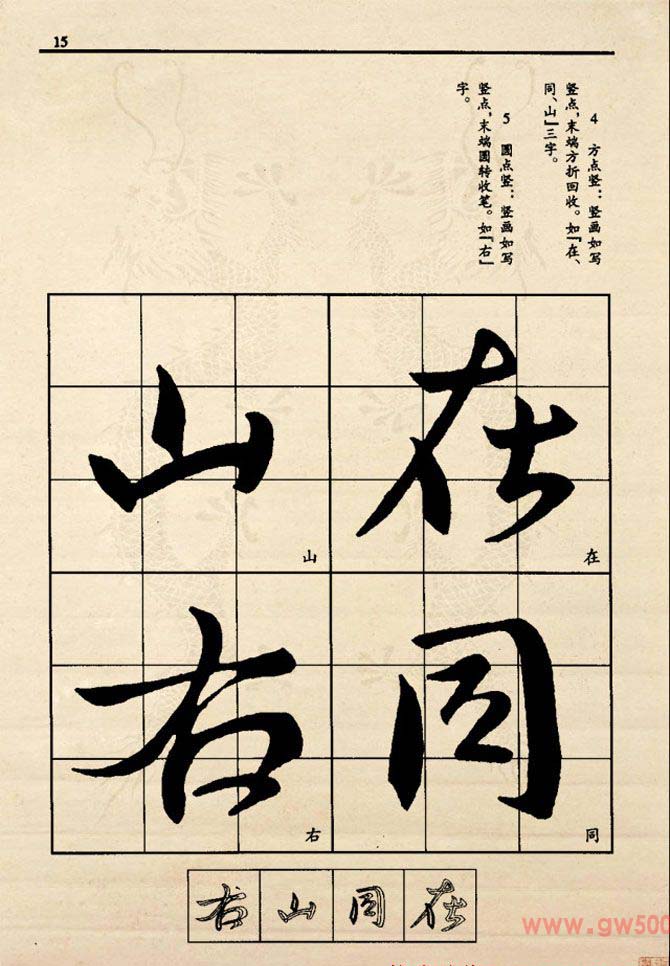 15
4 方点竖：竖画如写
竖点，末端方折回收。如『在、
同、山』三字。
5 圆点竖：竖画如写
竖点，末端圆转收笔。如『右』
字。
在
在
同
同
山
山
右
右
右山同在
www.gw500